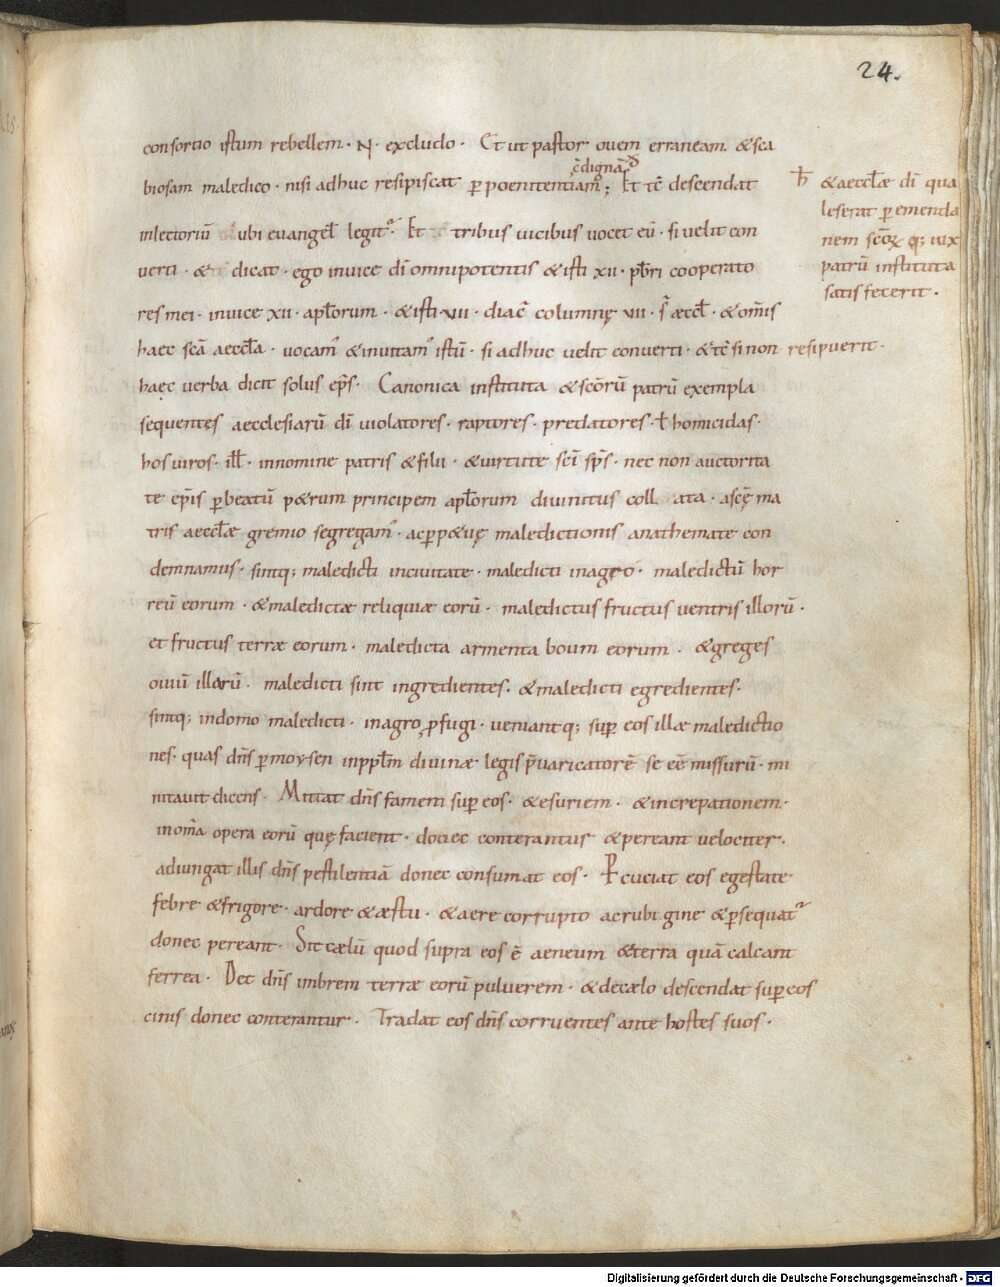 24.
consortio istum rebellem · N · excludo · Et ut pastor ouem erraneam &sca
biosam maledico · nisi adhuc resipiscat ꝑ poenitentiam; Et tc̄ descendat
c̄dignā
inlectoriū ubi euangel̄ legit᷑ · Et tribus uicibus uocet eū · si uelit con
uerti · & dicat · ego inuice dī omnipotentis & isti xii · pb̄ri cooperato
res mei · inuice xii · apl̄orum · & isti uii · diac̄ columnę uii · s̄ aeccl̄ · & om̄is
haec scā aeccl̄a · uocam᷑ & inuitam᷑ istū · si adhuc uelit conuerti · & tc̄ si non resipuerit ·
haec uerba dicit solus ep̄s · Canonica instituta & scōrū patrū exempla
sequentes aecclesiarū dī uiolatores · raptores · predatores · ł homicidas ·
hos uiros · ill̄ · innomine patris & filii · & uirtute scī sp̄s · nec non auctorita
te ep̄is ꝑ beatū p&rum principem apl̄orum diuinitus coll ata · a scę ma
tris aeccl̄æ gremio segregam᷑ · ac ꝑp&uę maledictionis anathemate con
demnamus · sintq; maledicti inciuitate · maledicti inagro · maledictū hor
reū eorum · & maledictæ reliquiæ eorū · maledictus fructus uentris illorū ·
et fructus terræ eorum · maledicta armenta boum eorum · & greges
ouiū illorū · maledicti sint ingredientes · & maledicti egredientes ·
sintq; indomo maledicti · inagro ꝓfugi · ueniantq; suꝑ eos illæ maledictio
nes · quas dn̄s ꝑ moysen inppl̄m diuinæ legis p̄uaricatorē se eē missurū · mi
nitauit dicens · Mittat dn̄s famem suꝑ eos · & esuriem · & increpationem ·
in om̄a opera eorū quę facient · donec conterantur & pereant uelociter ·
adiungat illis dn̄s pestilentiā donec consumat eos · Pcuciat eos egestate
febre & frigore · ardore & æstu · & aere corrupto ac rubigine & ꝑsequat᷑
donec pereant · Sit cælū quod supra eos ē aeneum & terra quā calcant
ferrea · Det dn̄s imbrem terræ eorū puluerem · & decælo descendat suꝑ eos
cinis donec conterantur · Tradat eos dn̄s corruentes ante hostes suos ·
ħ & aeccl̄æ dī qua
leserat ꝑ emenda
nem scōꝝ q; uix
patrū instituta
satis fecerit ·
Digitalisierung gefördert durch die Deutsche Forschungsgemeinschaft - DFG